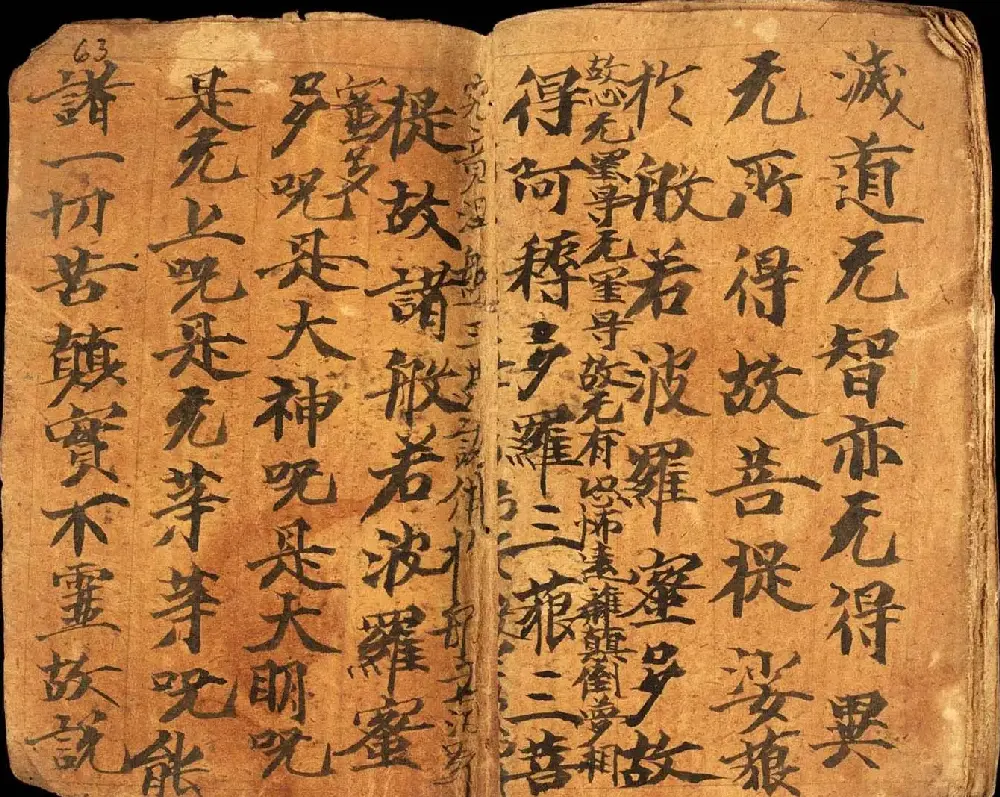 滅道无智亦无得 異
无所得故菩提娑蕯
於般若波羅蜜多故
故心无罣导无罣导故无有恐怖遠離顛倒夢相
得阿耨多羅三藐三菩
究竟涅槃三世諸佛於般若波羅
提故諸般若波羅蜜
蜜多
多呪是大神呪是大明呪
是无上呪是无等等呪能
諸一切苦顛實不虛故說
63